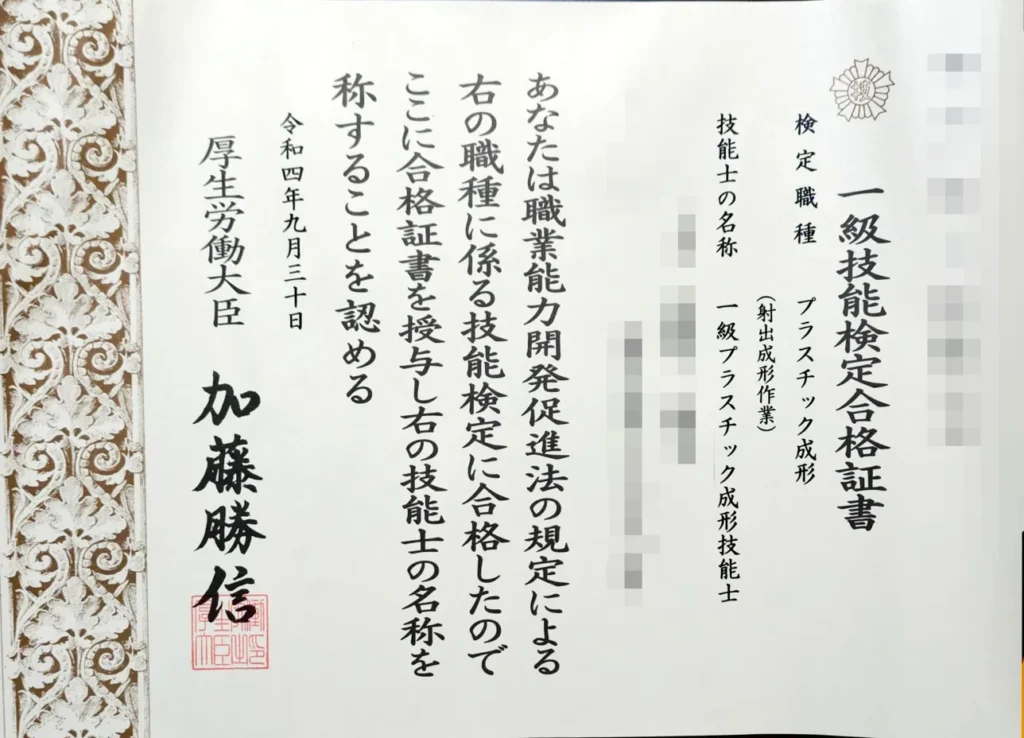 一級技能検定合格証書
検定職種 プラスチック成形
（射出成形作業）
技能士の名称 一級プラスチック成形技能士
あなたは職業能力開発促進法の規定による
右の職種に係る技能検定に合格したので
ここに合格証書を授与し右の技能士の名称を
称することを認める
令和四年九月三十日
厚生労働大臣 加藤勝信